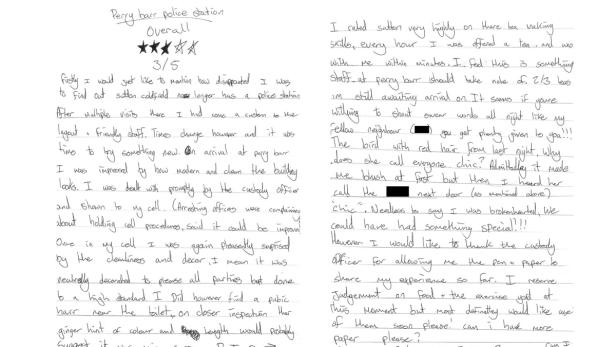 Perry barr police station
Overall
3/5
Firstly I would just like to mention how disappointed I was
to find out sutton coldfield no longer has a police station
After multiple visits there I had grown accustom to the
layout + friendly staff. Times change however and it was
time to try something new. On arrival at perry barr
I was impressed by how modern and clean the building
looks. I was dealt with promptly by the custody officer
and shown to my cell. (Arresting officers were complaining
about holding cell procedures, said it could be improved
Once in my cell I was again pleasently suprised
by the cleanliness and decor, I mean it was
neutrelly decorated to please all parties but done
to a high standard I Did however find a pubic
hair near the toilet, on closer inspection the
ginger hint of colour and length would probly
suggest it
I rated sutton very highly on there tea making
skills, every hour I was offered a tea and was
with me within minutes. I feel this is something
staff at perry barr should take note of 2/3 teas
im still awaiting arrival on It seems if youre
willying to shout swear words all night like my
fellow neighbour ( ) you get plenty given to you!!!
The bird with red hair from last night. Why
does she call everyone chic? Admittedly it made
me blush at first but then I heard her
call the next door (as mentiond above)
"chic". Needless to say I was brokenhearted, We
could have had something special!!!!
However I would like to thank the custody
officer for allowing me the pen + paper to
share my experience so far. I reserve
judgement on food + the exercise yard at
this moment but most definatley would like use
of them soon please! can i have more
paper please?